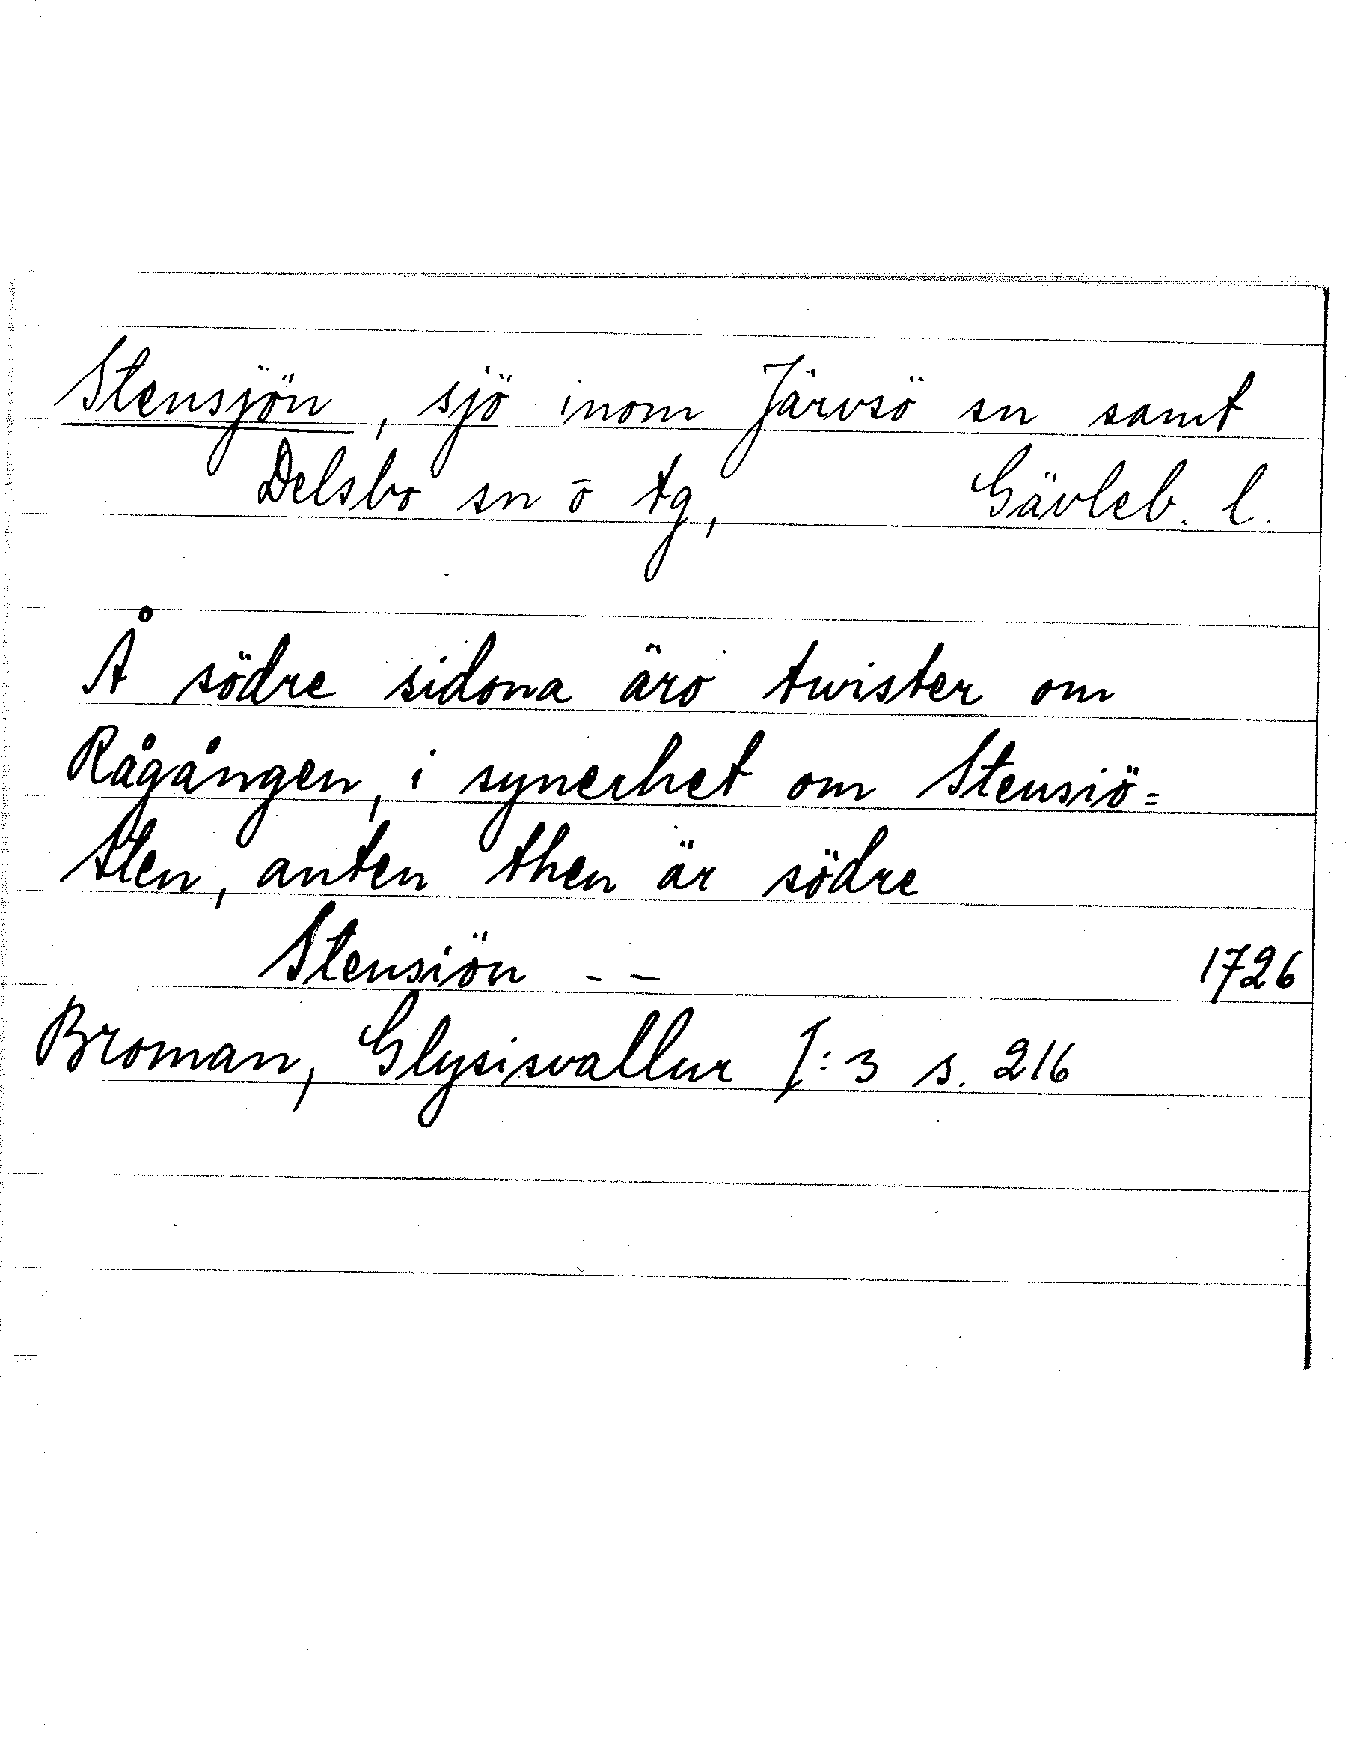 Stensjön, sjö inom Järvsö sn samt
Delsbo sn o tg, Gävleb. l.
Å södre sidona äro twister om
Rågången, i synerhet om Stensiö=
sten, anten then är södre
Stensiön - - 1726
Broman, Glysisvallur I:3 s. 216